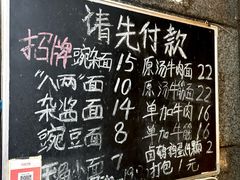 请先付款
招牌豌杂面 15
"八两"面 10
杂酱面 14
豌豆面 8
小面 7
原汤牛肉面 22
原汤牛筋面 22
单加牛肉 16
单加牛筋 16
卤鸡蛋 2
打包 1元